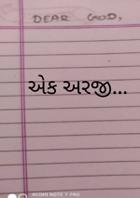 DEAR GOD,
એક અરજી...
REDMI NOTE 7 PRO